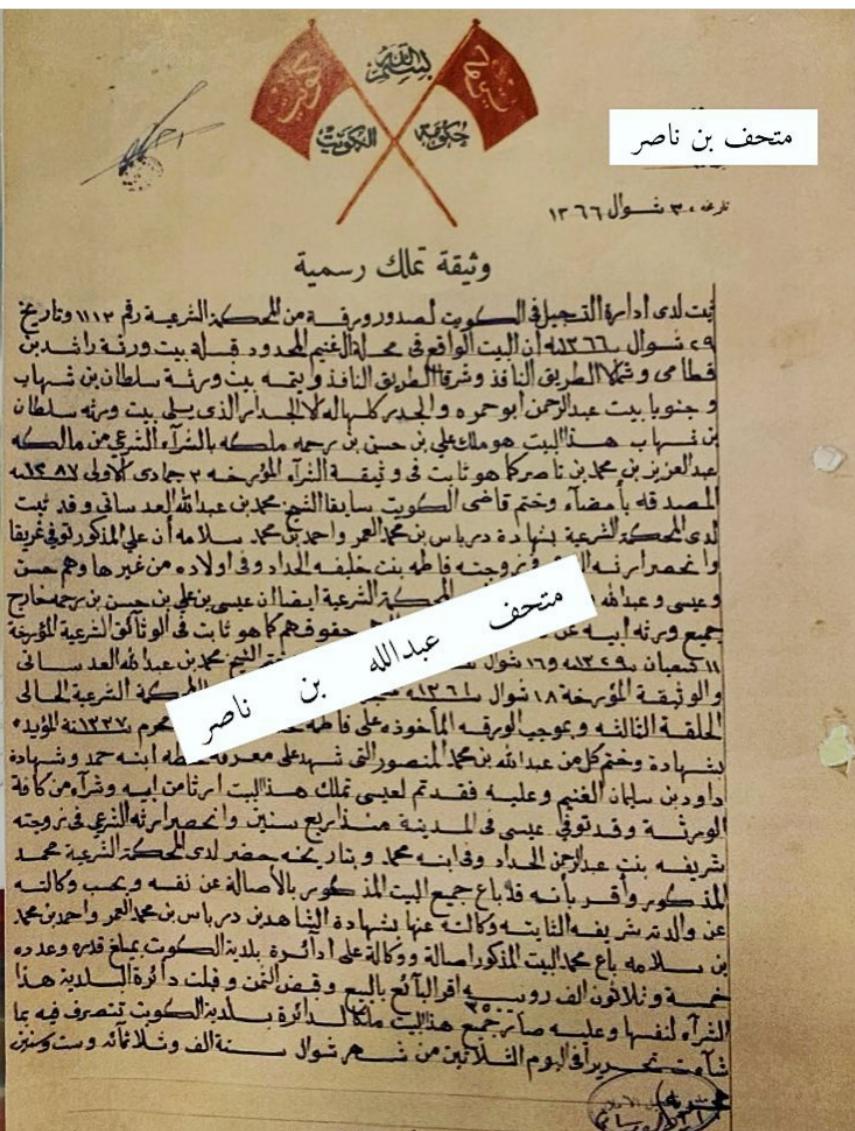 بسم الله
كويت
كويت
حكومة الكويت
متحف بن ناصر
تاريخ ٣٠ شوال ١٣٦٦
وثيقة تملك رسمية
ثبت لدى ادارة التسجيل في الكويت لصدور ورقة من المحكمة الشرعية رقم ١١١٣ وتاريخ
٢٩ شوال ١٣٦٦ه أن البيت الواقع في محلة الغنيم المحدود قبلة بيت ورثة راشد بن
قطامى وشمالا الطريق النافذ وشرقا الطريق النافذ ويتمه بيت ورثة سلطان بن شهاب
وجنوبا بيت عبدالرحمن أبو حمره والجدر كلها له الا الجدار الذى يلى بيت ورثه سلطان
بن شهاب هذا البيت هو ملك علي بن حسن بن رحمه ملكه بالشرآء الشرعي من مالكه
عبدالعزيز بن محمد بن ناصر كما هو ثابت فى وثيقة الشرآء المؤرخه ٣ جمادى الاولى ١٢٨٧ه
المصدقه بأمضآء وختم قاضى الكويت سابقا الشيخ محمد بن عبدالله العدسانى وقد ثبت
لدى المحكمة الشرعية بشهادة درباس بن محمد العمر واحمد بن محمد سلامه أن علي المذكور توفي غريقا
وانحصر ارثه فى زوجته فاطمه بنت خليفه الحداد وفى اولاده من غيرها وهم حسن
وعيسى وعبدالله المحكمة الشرعية ايضا ان عيسى بن علي بن حسن بن رحمه خارج
جميع ورثه أبيه عن حقوقهم كما هو ثابت فى الوثائق الشرعية المؤرخة
١١ شعبان ١٣٢٩ه و١٦ شوال الشيخ محمد بن عبدالله العدسانى
والوثيقة المؤرخة ١٨ شوال ١٣٦١ه المحكمة الشرعية الحالى
الحلقة الثالثه وبموجب الورقه المأخوذه على فاطمه محرم ١٣٣٧نة المؤيده
بشهادة وختم كل من عبدالله بن محمد المنصور التى شهد على معرفة خطه ابنه حمد وشهادة
داود بن سليمان الغنيم وعليه فقد تم لعيسى تملك هذا البيت ارثا من ابيه وشرآء من كافة
الورثة وقد توفي عيسى فى المدينة منذ اربع سنين وانحصر ارثه الشرعي فى زوجته
شريفه بنت عبدالرحمن الحداد وفى ابنه محمد وبتاريخه حضر لدى المحكمة الشرعية محمد
المذكور وأقر بأنه قد باع جميع البيت المذكور بالأصالة عن نفسه وبحسب وكالته
عن والدته شريفه الثابته وكالته عنها بشهادة الشاهدين درباس بن محمد العمر واحمد بن محمد
بن سلامه باع محمد البيت المذكور اصالة ووكالة على ادآئرة بلدية الكويت بمبلغ قدره وعدده
خمسة وثلاثون الف روبيه ٣٥٠٠٠ اقر البآئع بالبيع وقبض الثمن وقبلت دآئرة البلدية هذا
الشرآء لنفسها وعليه صار جميع هذا البيت ملكا لدائرة بلدية الكويت تتصرف فيه بما
شآءت تحريرا فى اليوم الثلاثين من شهر شوال سنة الف وثلاثمائه وست وستين
متحف عبدالله بن ناصر